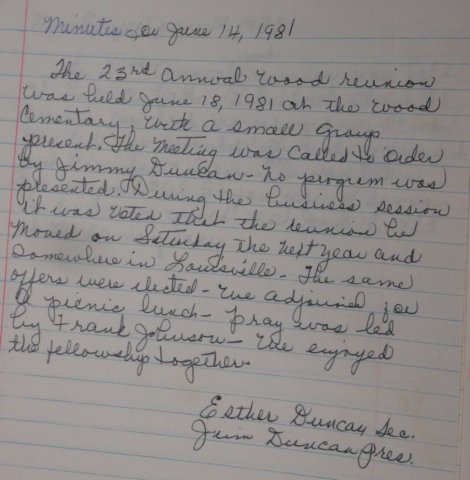 Minutes for June 14, 1981
The 23rd annual Wood reunion
was held June 18, 1981 at the Wood
Cementary. With a small group
present. The Meeting was called to order
by Jimmy Duncan - no program was
presented. During the business session
it was voted that the reunion be
moved on Saturday the next year and
somewhere in Louisville - The same
offers were elected - we adjoined for
a picnic lunch - pray was led
by Frank Johnson - We enjoyed
the fellowship together.
Esther Duncan Sec.
Jim Duncan Pres.